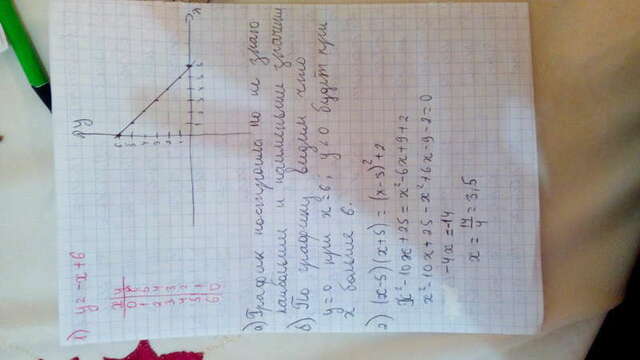 1) y=-x+6
x y
0 6
1 5
2 4
3 3
4 2
5 1
6 0
y
6
5
4
3
2
1
1 2 3 4 5 6
x
а) График построила но не знаю
наибольшим и наименьшие значени
б) По графику видим что
y=0 при x=6; y<0 будет при
x больше 6.
2) (x-5)(x+5) = (x-3)²+2
x²-10x+25 = x²-6x+9+2
x²-10x+25-x²+6x-9-2=0
-4x=-14
x = 14/4 = 3,5